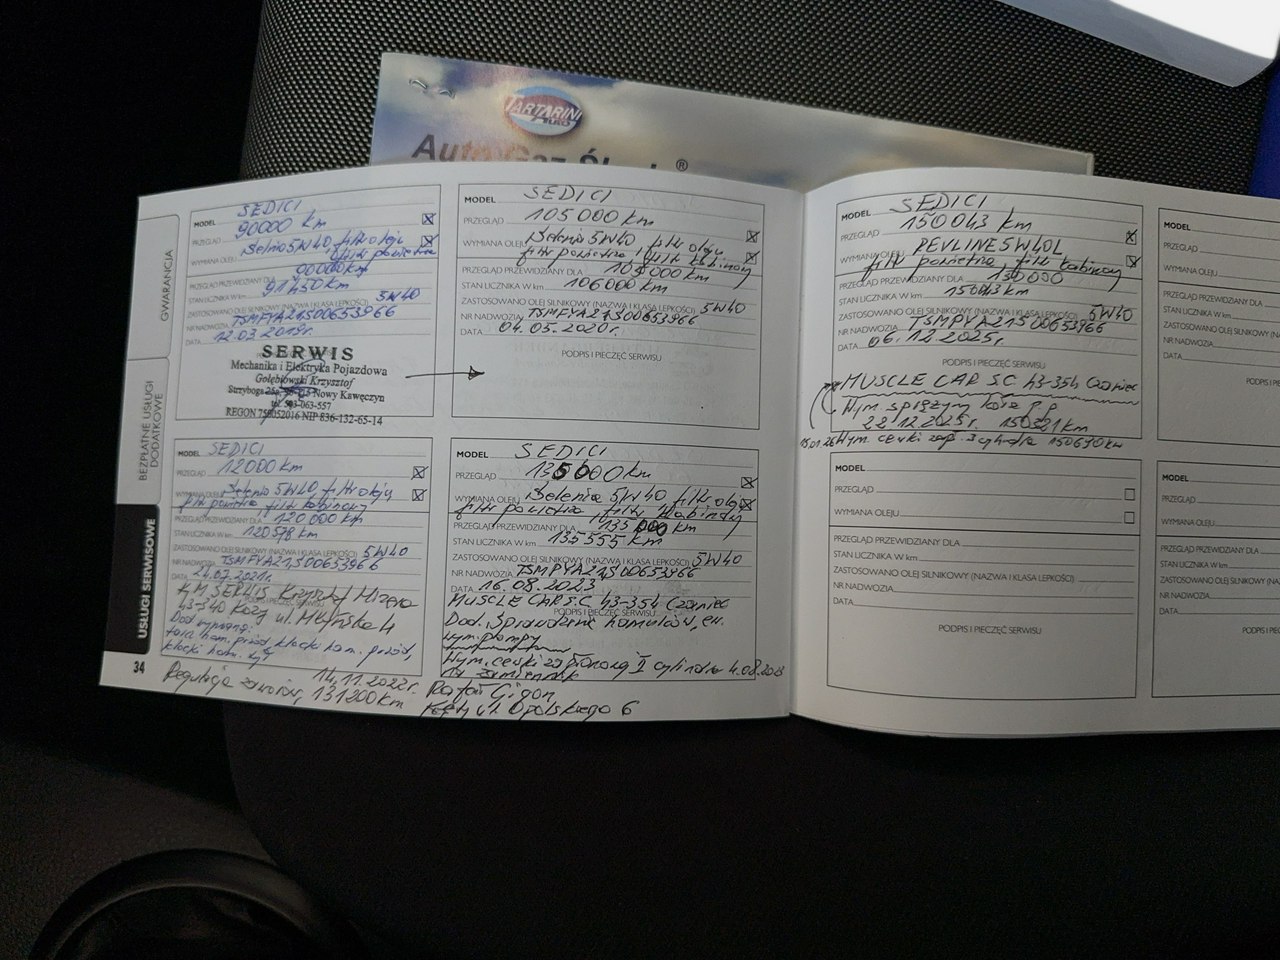 TARTARINI
AUTO
Auto Gaz Śląsk®
GWARANCJA
BEZPŁATNE USŁUGI
DODATKOWE
USŁUGI SERWISOWE
34
MODEL SEDICI
PRZEGLĄD 90000 km
WYMIANA OLEJU Selenia 5W40 filtr oleju
filtr powietrza
PRZEGLĄD PRZEWIDZIANY DLA 90000 km
STAN LICZNIKA W km 91450 km
ZASTOSOWANO OLEJ SILNIKOWY (NAZWA I KLASA LEPKOŚCI) 5W40
NR NADWOZIA TSMFYA21S00653966
DATA 12.03 2019r.
SERWIS
Mechanika i Elektryka Pojazdowa
Gołębiowski Krzysztof
Strzyboga 25a, Nowy Kawęczyn
tel. 503-063-557
REGON 750052016 NIP 836-132-65-14
MODEL SEDICI
PRZEGLĄD 105000 km
WYMIANA OLEJU Selenia 5W40 filtr oleju
filtr powietrza filtr kabinowy
PRZEGLĄD PRZEWIDZIANY DLA 105000 km
STAN LICZNIKA W km 106000 km
ZASTOSOWANO OLEJ SILNIKOWY (NAZWA I KLASA LEPKOŚCI) 5W40
NR NADWOZIA TSMFYA21S00653966
DATA 04.05.2020r.
PODPIS I PIECZĘĆ SERWISU
MODEL SEDICI
PRZEGLĄD 12000 km
WYMIANA OLEJU Selenia 5W40 filtr oleju
filtr powietrza, filtr kabinowy
PRZEGLĄD PRZEWIDZIANY DLA 120000 km
STAN LICZNIKA W km 120578 km
ZASTOSOWANO OLEJ SILNIKOWY (NAZWA I KLASA LEPKOŚCI) 5W40
NR NADWOZIA TSMFYA21S00653966
DATA 07.2021r.
KM SERWIS Krzysztof
43-340 Kozy ul. Młyńska 4
Dod. wymiana:
tarcz ham. przód, klocki ham. przód,
klocki ham. tył
Regulacja zaworów, 14.11.2022r.
131200 km
MODEL SEDICI
PRZEGLĄD 135000 km
WYMIANA OLEJU Selenia 5W40 filtr oleju
filtr powietrza, filtr kabinowy
PRZEGLĄD PRZEWIDZIANY DLA 135 000 km
STAN LICZNIKA W km 135555 km
ZASTOSOWANO OLEJ SILNIKOWY (NAZWA I KLASA LEPKOŚCI) 5W40
NR NADWOZIA TSMFYA21S00653966
DATA 16.08.2023
MUSCLE CAR S.C. 43-354 Czaniec
PODPIS I PIECZĘĆ SERWISU
Dod. Sprawdzenie hamulców, ew.
wym. pompy
Wym. cewki zapłonowej II cylindra 4.08.2023
na zamiennik
Rafał Gigon
Kęty ul. Opolskiego 6
MODEL SEDICI
PRZEGLĄD 150043 km
WYMIANA OLEJU REVLINE 5W40L
filtr powietrza, filtr kabinowy
PRZEGLĄD PRZEWIDZIANY DLA 150000
STAN LICZNIKA W km 15043 km
ZASTOSOWANO OLEJ SILNIKOWY (NAZWA I KLASA LEPKOŚCI) 5W40
NR NADWOZIA TSMFYA21S00653966
DATA 06.12.2025r.
PODPIS I PIECZĘĆ SERWISU
MUSCLE CAR S.C 43-354 Czaniec
Wym sprężyn koła p.p
22.12.2025r. 150321 km
15.01.26 Wym. cewki zap. 3 cylindra 150690 km
MODEL
PRZEGLĄD
WYMIANA OLEJU
PRZEGLĄD PRZEWIDZIANY DLA
STAN LICZNIKA W km
ZASTOSOWANO OLEJ SILNIKOWY (NAZWA I KLASA LEPKOŚCI)
NR NADWOZIA
DATA
PODPIS I PIECZĘĆ SERWISU
MODEL
PRZEGLĄD
WYMIANA OLEJU
PRZEGLĄD PRZEWIDZIANY DLA
STAN LICZNIKA W km
ZASTOSOWANO OLEJ SILNIKOWY
NR NADWOZIA
DATA
MODEL
PRZEGLĄD
WYMIANA OLEJU
PRZEGLĄD PRZEWIDZIANY
STAN LICZNIKA W km
ZASTOSOWANO OLEJ SILNIKOWY (NA
NR NADWOZIA
DATA